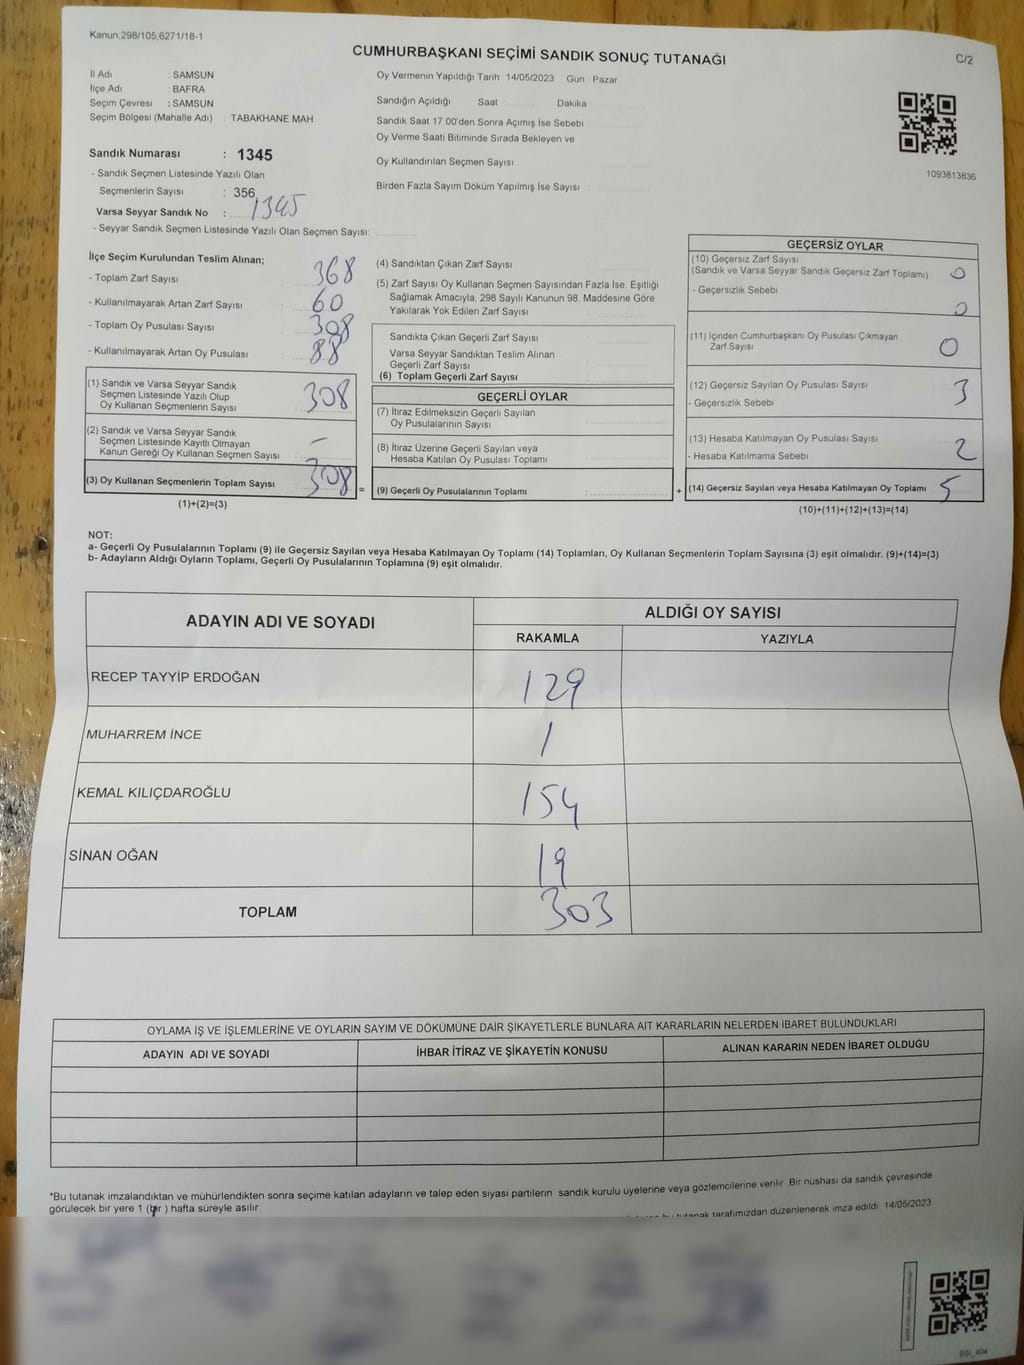 Kanun.298/105,6271/18-1
CUMHURBAŞKANI SEÇİMİ SANDIK SONUÇ TUTANAĞI
C/2
İl Adı : SAMSUN
İlçe Adı : BAFRA
Seçim Çevresi : SAMSUN
Seçim Bölgesi (Mahalle Adı) : TABAKHANE MAH.
Sandık Numarası : 1345
- Sandık Seçmen Listesinde Yazılı Olan
Seçmenlerin Sayısı : 356
Varsa Seyyar Sandık No : 1345
- Seyyar Sandık Seçmen Listesinde Yazılı Olan Seçmen Sayısı:
Oy Vermenin Yapıldığı Tarih 14/05/2023 Gün Pazar
Sandığın Açıldığı Saat Dakika
Sandık Saat 17:00'den Sonra Açımış İse Sebebi
Oy Verme Saati Bitiminde Sırada Bekleyen ve
Oy Kullandırılan Seçmen Sayısı
Birden Fazla Sayım Döküm Yapılmış İse Sayısı
1093813836
İlçe Seçim Kurulundan Teslim Alınan;
- Toplam Zarf Sayısı : 368
- Kullanılmayarak Artan Zarf Sayısı : 60
- Toplam Oy Pusulası Sayısı :
- Kullanılmayarak Artan Oy Pusulası : 88
(1) Sandık ve Varsa Seyyar Sandık
Seçmen Listesinde Yazılı Olup
Oy Kullanan Seçmenlerin Sayısı 308
(2) Sandık ve Varsa Seyyar Sandık
Seçmen Listesinde Kayıtlı Olmayan
Kanun Gereği Oy Kullanan Seçmen Sayısı : -
(3) Oy Kullanan Seçmenlerin Toplam Sayısı 308
(1)+(2)=(3)
(4) Sandıktan Çıkan Zarf Sayısı
(5) Zarf Sayısı Oy Kullanan Seçmen Sayısından Fazla İse, Eşitliği
Sağlamak Amacıyla, 298 Sayılı Kanunun 98. Maddesine Göre
Yakılarak Yok Edilen Zarf Sayısı
Sandıkta Çıkan Geçerli Zarf Sayısı
Varsa Seyyar Sandıktan Teslim Alınan
Geçerli Zarf Sayısı
(6) Toplam Geçerli Zarf Sayısı
GEÇERLİ OYLAR
(7) İtiraz Edilmeksizin Geçerli Sayılan
Oy Pusulalarının Sayısı
(8) İtiraz Üzerine Geçerli Sayılan veya
Hesaba Katılan Oy Pusulası Toplamı
= (9) Geçerli Oy Pusulalarının Toplamı : +
GEÇERSİZ OYLAR
(10) Geçersiz Zarf Sayısı
(Sandık ve Varsa Seyyar Sandık Geçersiz Zarf Toplamı) 0
- Geçersizlik Sebebi
0
(11) İçinden Cumhurbaşkanı Oy Pusulası Çıkmayan
Zarf Sayısı 0
(12) Geçersiz Sayılan Oy Pusulası Sayısı 3
- Geçersizlik Sebebi
(13) Hesaba Katılmayan Oy Pusulası Sayısı
- Hesaba Katılmama Sebebi 2
(14) Geçersiz Sayılan veya Hesaba Katılmayan Oy Toplamı 5
(10)+(11)+(12)+(13)=(14)
NOT:
a- Geçerli Oy Pusulalarının Toplamı (9) ile Geçersiz Sayılan veya Hesaba Katılmayan Oy Toplamı (14) Toplamları, Oy Kullanan Seçmenlerin Toplam Sayısına (3) eşit olmalıdır. (9)+(14)=(3)
b- Adayların Aldığı Oyların Toplamı, Geçerli Oy Pusulalarının Toplamına (9) eşit olmalıdır.
ADAYIN ADI VE SOYADI
ALDIĞI OY SAYISI
RAKAMLA YAZIYLA
RECEP TAYYİP ERDOĞAN 129
MUHARREM İNCE 1
KEMAL KILIÇDAROĞLU 154
SİNAN OĞAN 19
TOPLAM 303
OYLAMA İŞ VE İŞLEMLERİNE VE OYLARIN SAYIM VE DÖKÜMÜNE DAİR ŞİKAYETLERLE BUNLARA AİT KARARLARIN NELERDEN İBARET BULUNDUKLARI
ADAYIN ADI VE SOYADI İHBAR İTİRAZ VE ŞİKAYETİN KONUSU ALINAN KARARIN NEDEN İBARET OLDUĞU
*Bu tutanak imzalandıktan ve mühürlendikten sonra seçime katılan adayların ve talep eden siyasi partilerin sandık kurulu üyelerine veya gözlemcilerine verilir. Bir nushası da sandık çevresinde
görülecek bir yere 1 (bir) hafta süreyle asılır
bu tutanak tarafımızdan düzenlenerek imza edildi. 14/05/2023